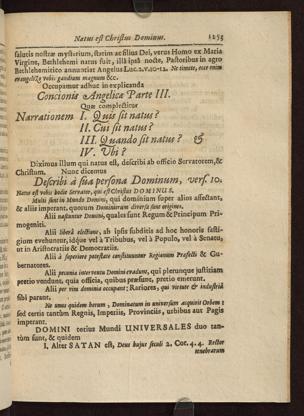 Natus est Christus Dominus. 1255
salutis nostræ mysterium, statim ac filius Dei, verus Homo ex Maria
Virgine, Bethlehemi natus fuit, illâ ipsâ nocte, Pastoribus in agro
Bethlehemitico annuntiat Angelus Luc. 2. v. 10-12. Ne timete, ecce enim
evangeliZo vobis gaudium magnum &c.
Occupamur adhuc in explicanda
Concionis Angelicæ Parte III.
Quæ complectitur
Narrationem I. Quis sit natus?
II. Cui sit natus?
III. Quando sit natus? &
IV. Ubi?
Diximus illum qui natus est, describi ab officio Servatorem, &
Christum. Nunc dicemus
Describi à sua persona Dominum, vers. 10.
Natus est vobis hodie Servator, qui est Christus DOMINUS.
Multi sunt in Mundo Domini, qui dominium super alios affectant,
& aliis imperant, quorum Dominiorum diversæ sunt origines.
Alii nascuntur Domini, quales sunt Regum & Principum Pri-
mogeniti.
Alii liberâ electione, ab ipsis subditis ad hoc honoris fasti-
gium evehuntur, idque vel à Tribubus, vel à Populo, vel à Senatu,
ut in Aristocratiis & Democratiis.
Alii à superiore potestate constituuntur Regionum Præfecti & Gu-
bernatores.
Alii pecunia interventu Domini evadunt, qui plerunque justitiam
pretio vendunt, quia officia, quibus præsunt, pretio emerunt.
Alii per vim dominia occupant; Rariores, qui virtute & industriâ
sibi parant.
Ne unus quidem horum, Dominatum in universum acquirit Orbem;
sed certis tantùm Regnis, Imperiis, Provinciis, urbibus aut Pagis
imperant.
DOMINI totius Mundi UNIVERSALES duo tan-
tùm sunt, & quidem
I. Alter SATAN est, Deus hujus seculi 2. Cor. 4. 4. Rector
tenebrarum